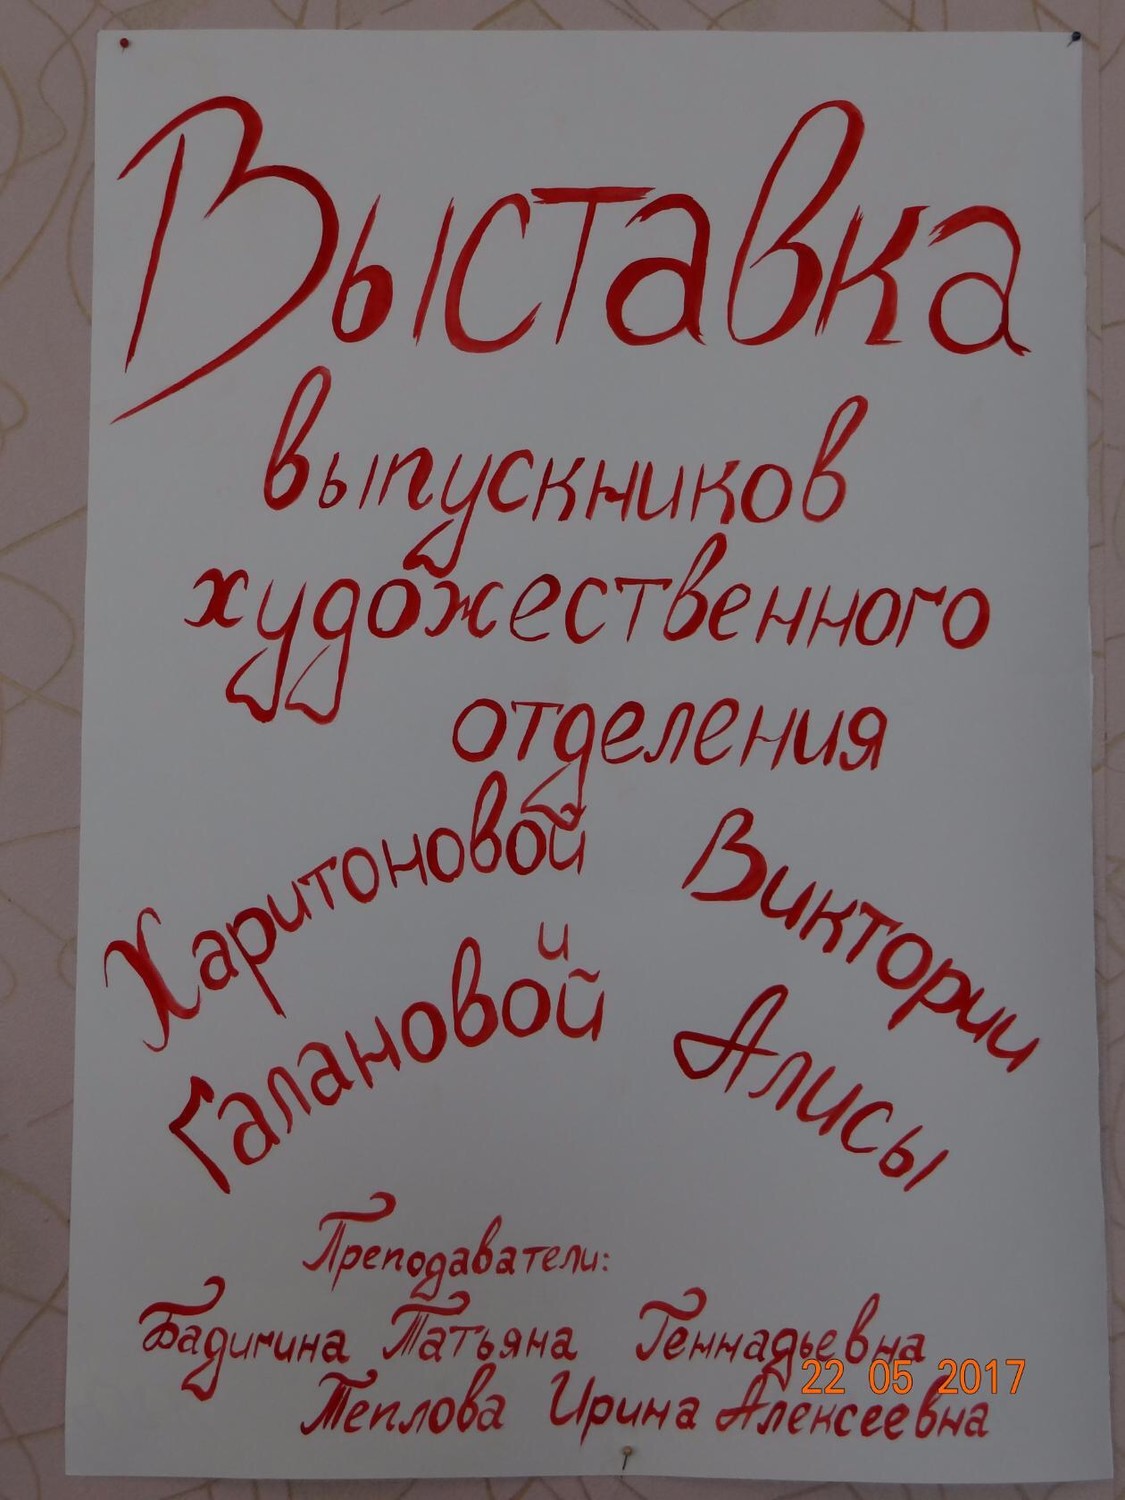 Выставка
выпускников
художественного
отделения
Харитоновой Виктории
и
Галановой Алисы
Преподаватели:
Бадигина Татьяна Геннадьевна
22 05 2017
Теплова Ирина Алексеевна